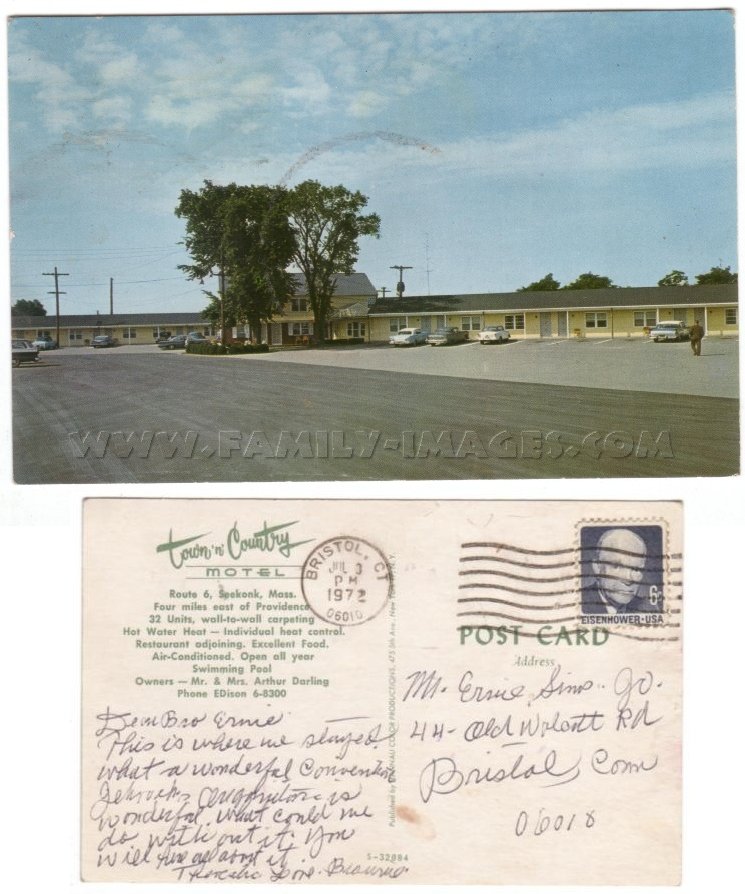 WWW.FAMILY-IMAGES.COM
Town 'n' Country
MOTEL
Route 6, Seekonk, Mass.
Four miles east of Providence
32 Units, wall-to-wall carpeting
Hot Water Heat — Individual heat control.
Restaurant adjoining. Excellent Food.
Air-Conditioned. Open all year
Swimming Pool
Owners — Mr. & Mrs. Arthur Darling
Phone EDison 6-8300
BRISTOL, CT
JUL 3
PM
1972
06010
6c
EISENHOWER·USA
POST CARD
Address
Dear Bro Ernie
This is where we stayed.
what a wonderful Convention
is
wonderful, what could we
do without it, you
will hear all about it.
Mr. Ernie Sims
44- Old Wolcott Rd
Bristol, Conn
06018
COLOR PRODUCTIONS, 475 5th Ave., New York, N.Y.
S-32884